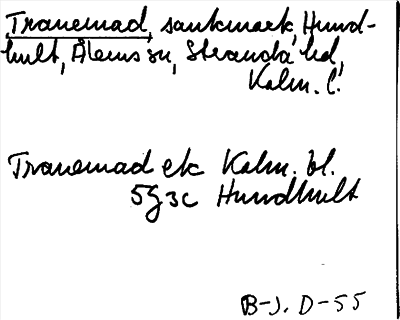 Tranemad, sankmark, Hund-
hult, Ålems sn, Stranda hd,
Kalm. l.
Tranemad ek Kalm. bl.
5G3c Hundhult
B-J. D-55